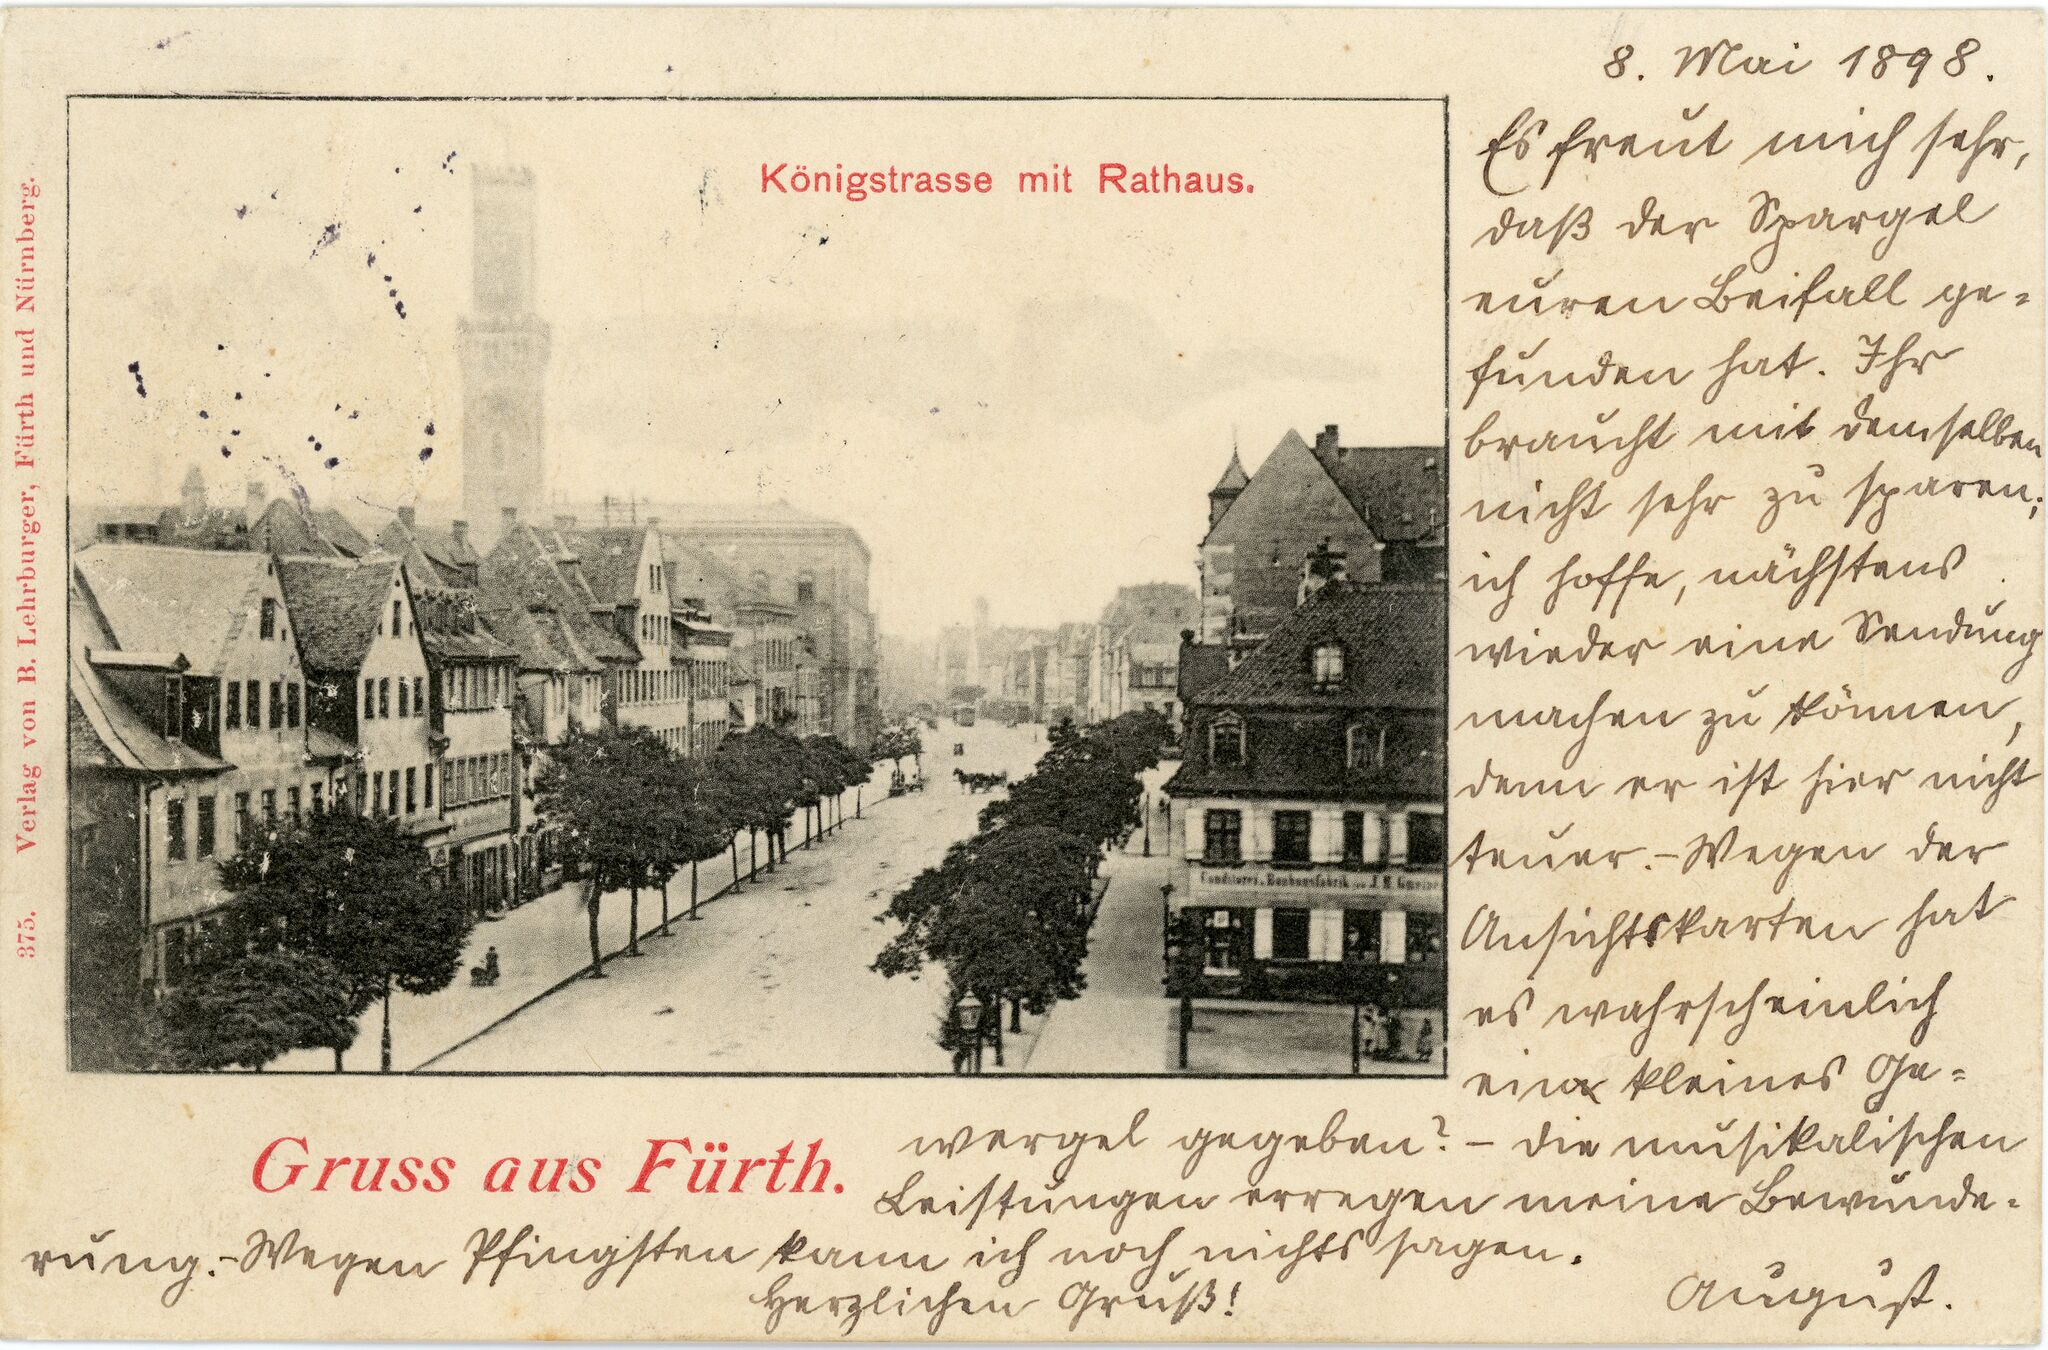 8. Mai 1898.
Es freut mich sehr,
daß der Spargel
euren Beifall ge=
funden hat. Ihr
braucht mit demselben
nicht sehr zu sparen;
ich hoffe, nächstens
wieder eine Sendung
machen zu können,
denn er ist hier nicht
teuer. – Wegen der
Ansichtskarten hat
es wahrscheinlich
ein kleines Ge=
wergel gegeben? – die musikalischen
Leistungen erregen meine Bewunde=
rung. – Wegen Pfingsten kann ich noch nichts sagen.
Herzlichen Gruß!
August.
Königstrasse mit Rathaus.
Gruss aus Fürth.
375. Verlag von B. Lehrburger, Fürth und Nürnberg.
Conditorei